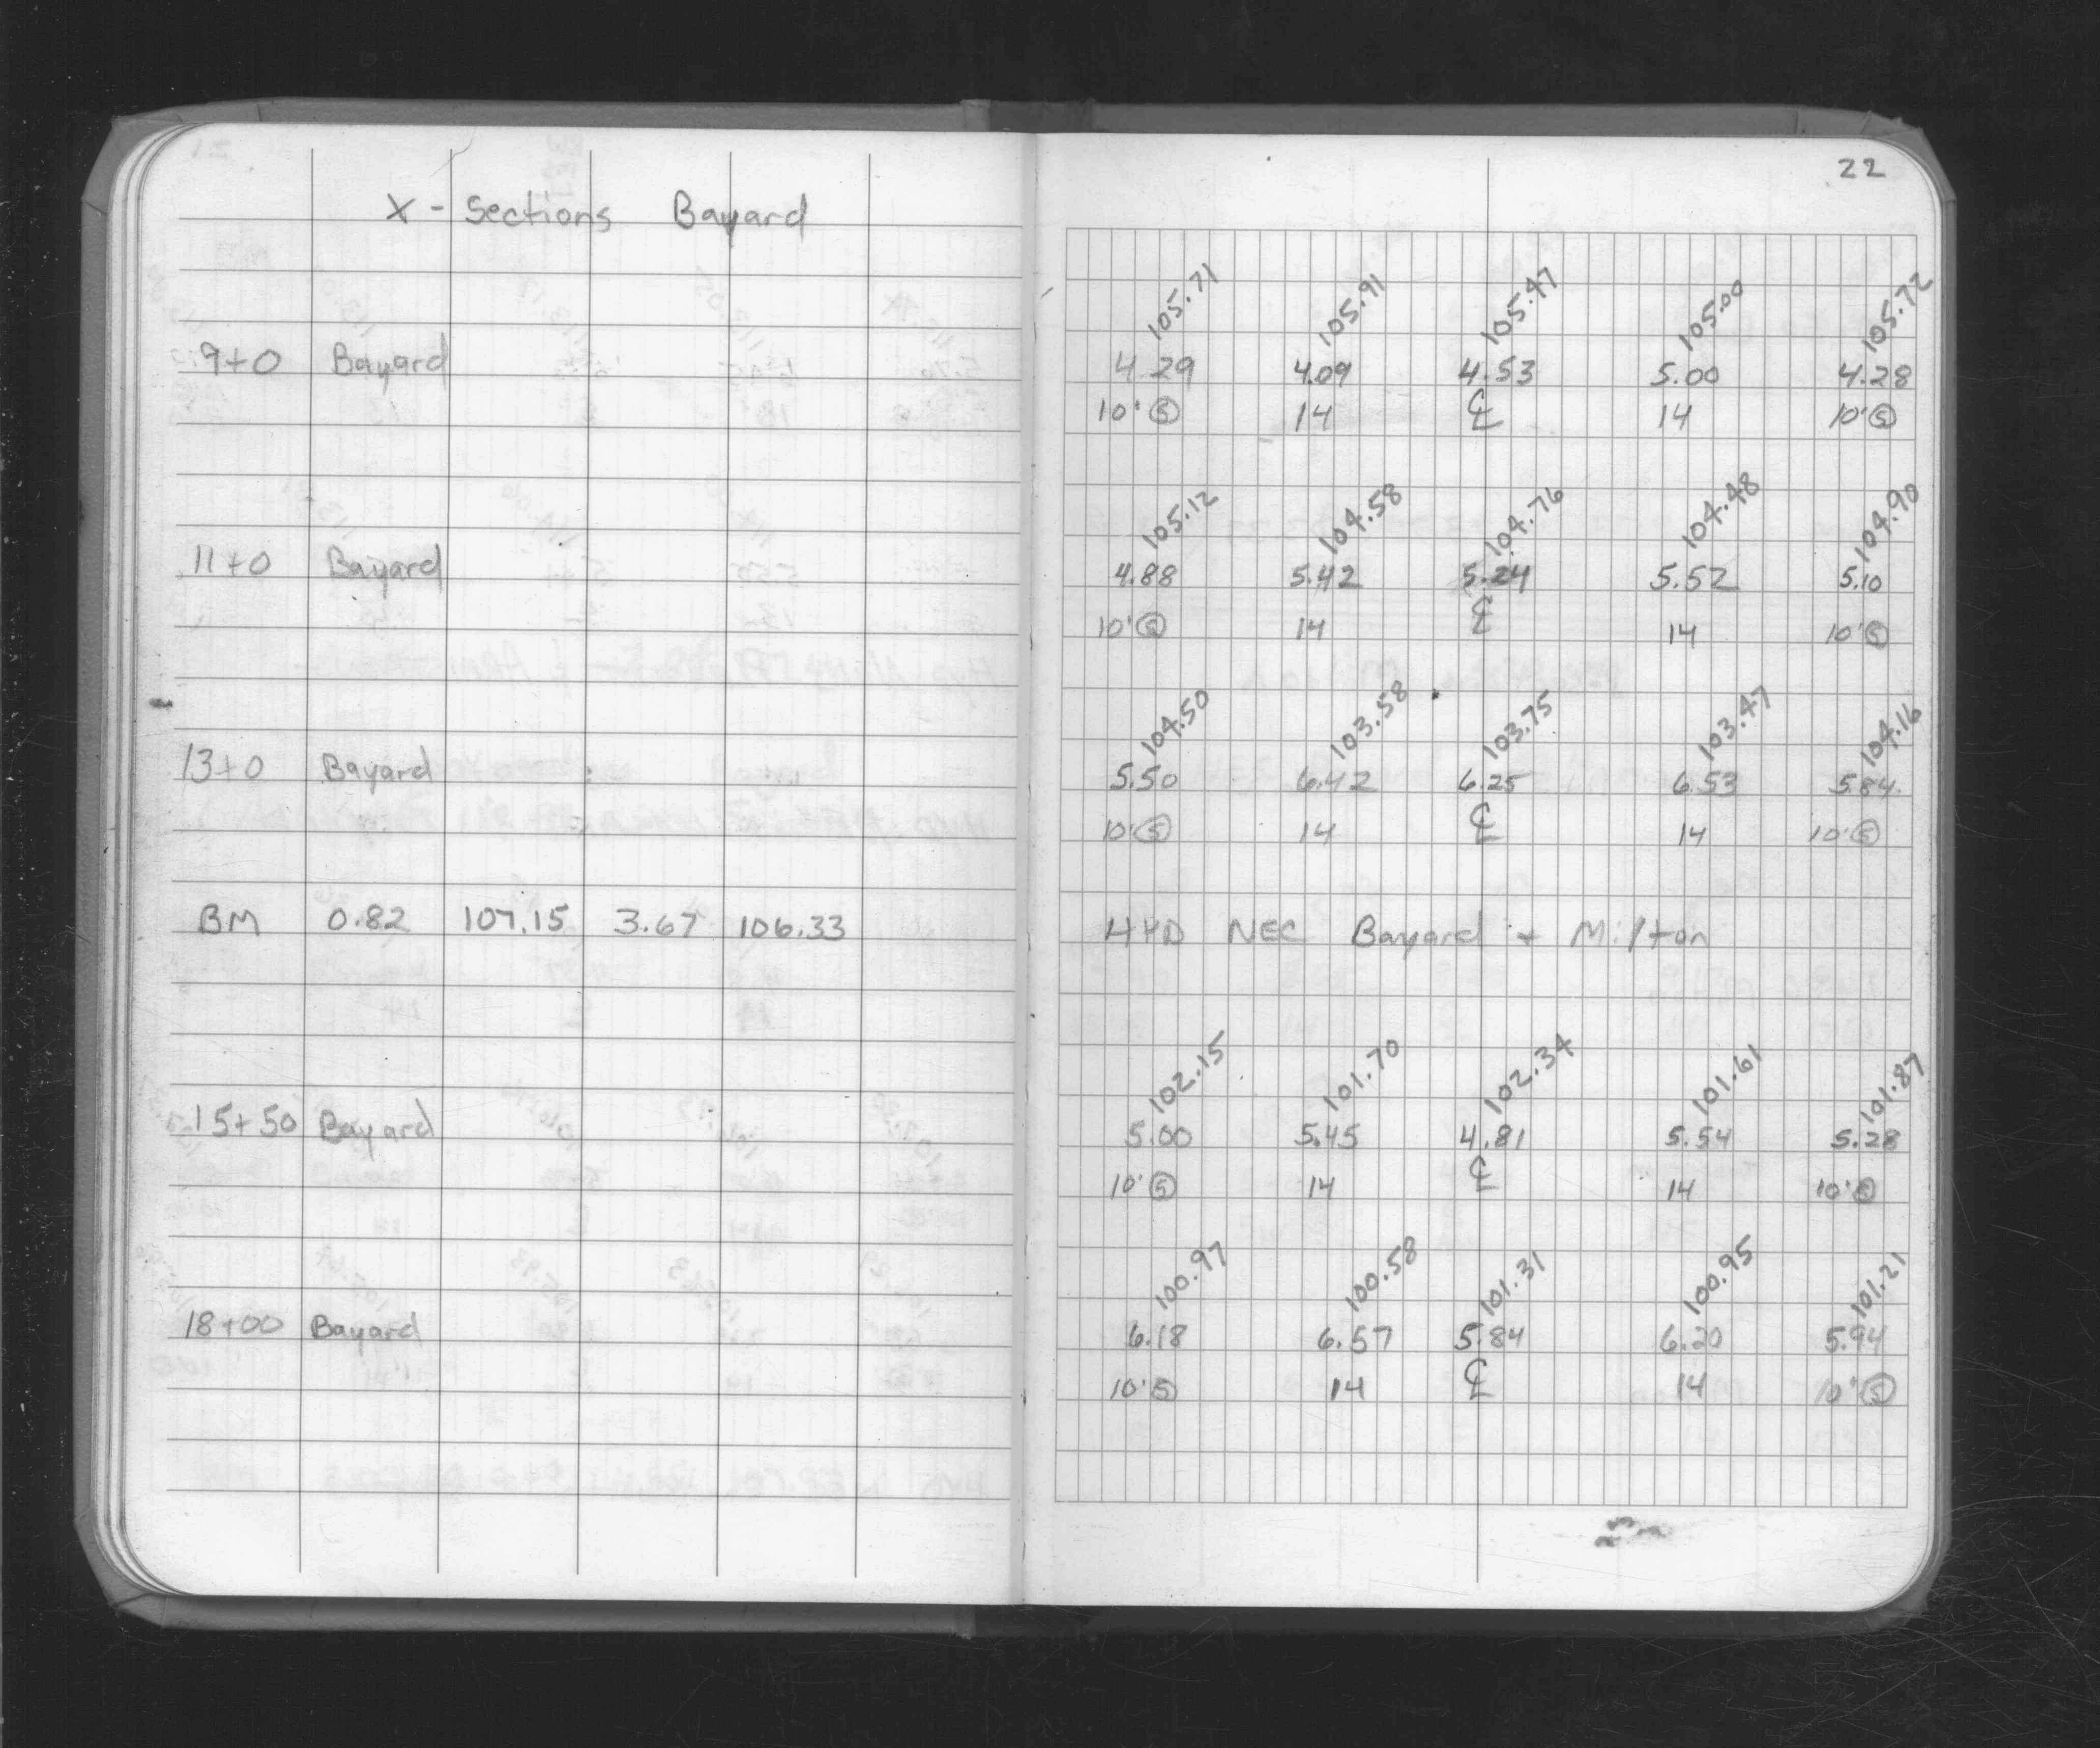 22
X - Sections Bayard
105.71 105.91 105.47 105.00 105.72
9+0 Bayard 4.29 4.09 4.53 5.00 4.28
10' Ⓢ 14 ℄ 14 10' Ⓢ
105.12 104.58 104.76 104.48 104.90
11+0 Bayard 4.88 5.42 5.24 5.52 5.10
10' Ⓢ 14 ℄ 14 10' Ⓢ
104.50 103.58 103.75 103.47 104.16
13+0 Bayard 5.50 6.42 6.25 6.53 5.84
10' Ⓢ 14 ℄ 14 10' Ⓢ
BM 0.82 107.15 3.67 106.33 HYD NEC Bayard + Milton
102.15 101.70 102.34 101.61 101.87
15+50 Bayard 5.00 5.45 4.81 5.54 5.28
10' Ⓢ 14 ℄ 14 10' Ⓢ
100.97 100.58 101.31 100.95 101.21
18+00 Bayard 6.18 6.57 5.84 6.20 5.94
10' Ⓢ 14 ℄ 14 10' Ⓢ